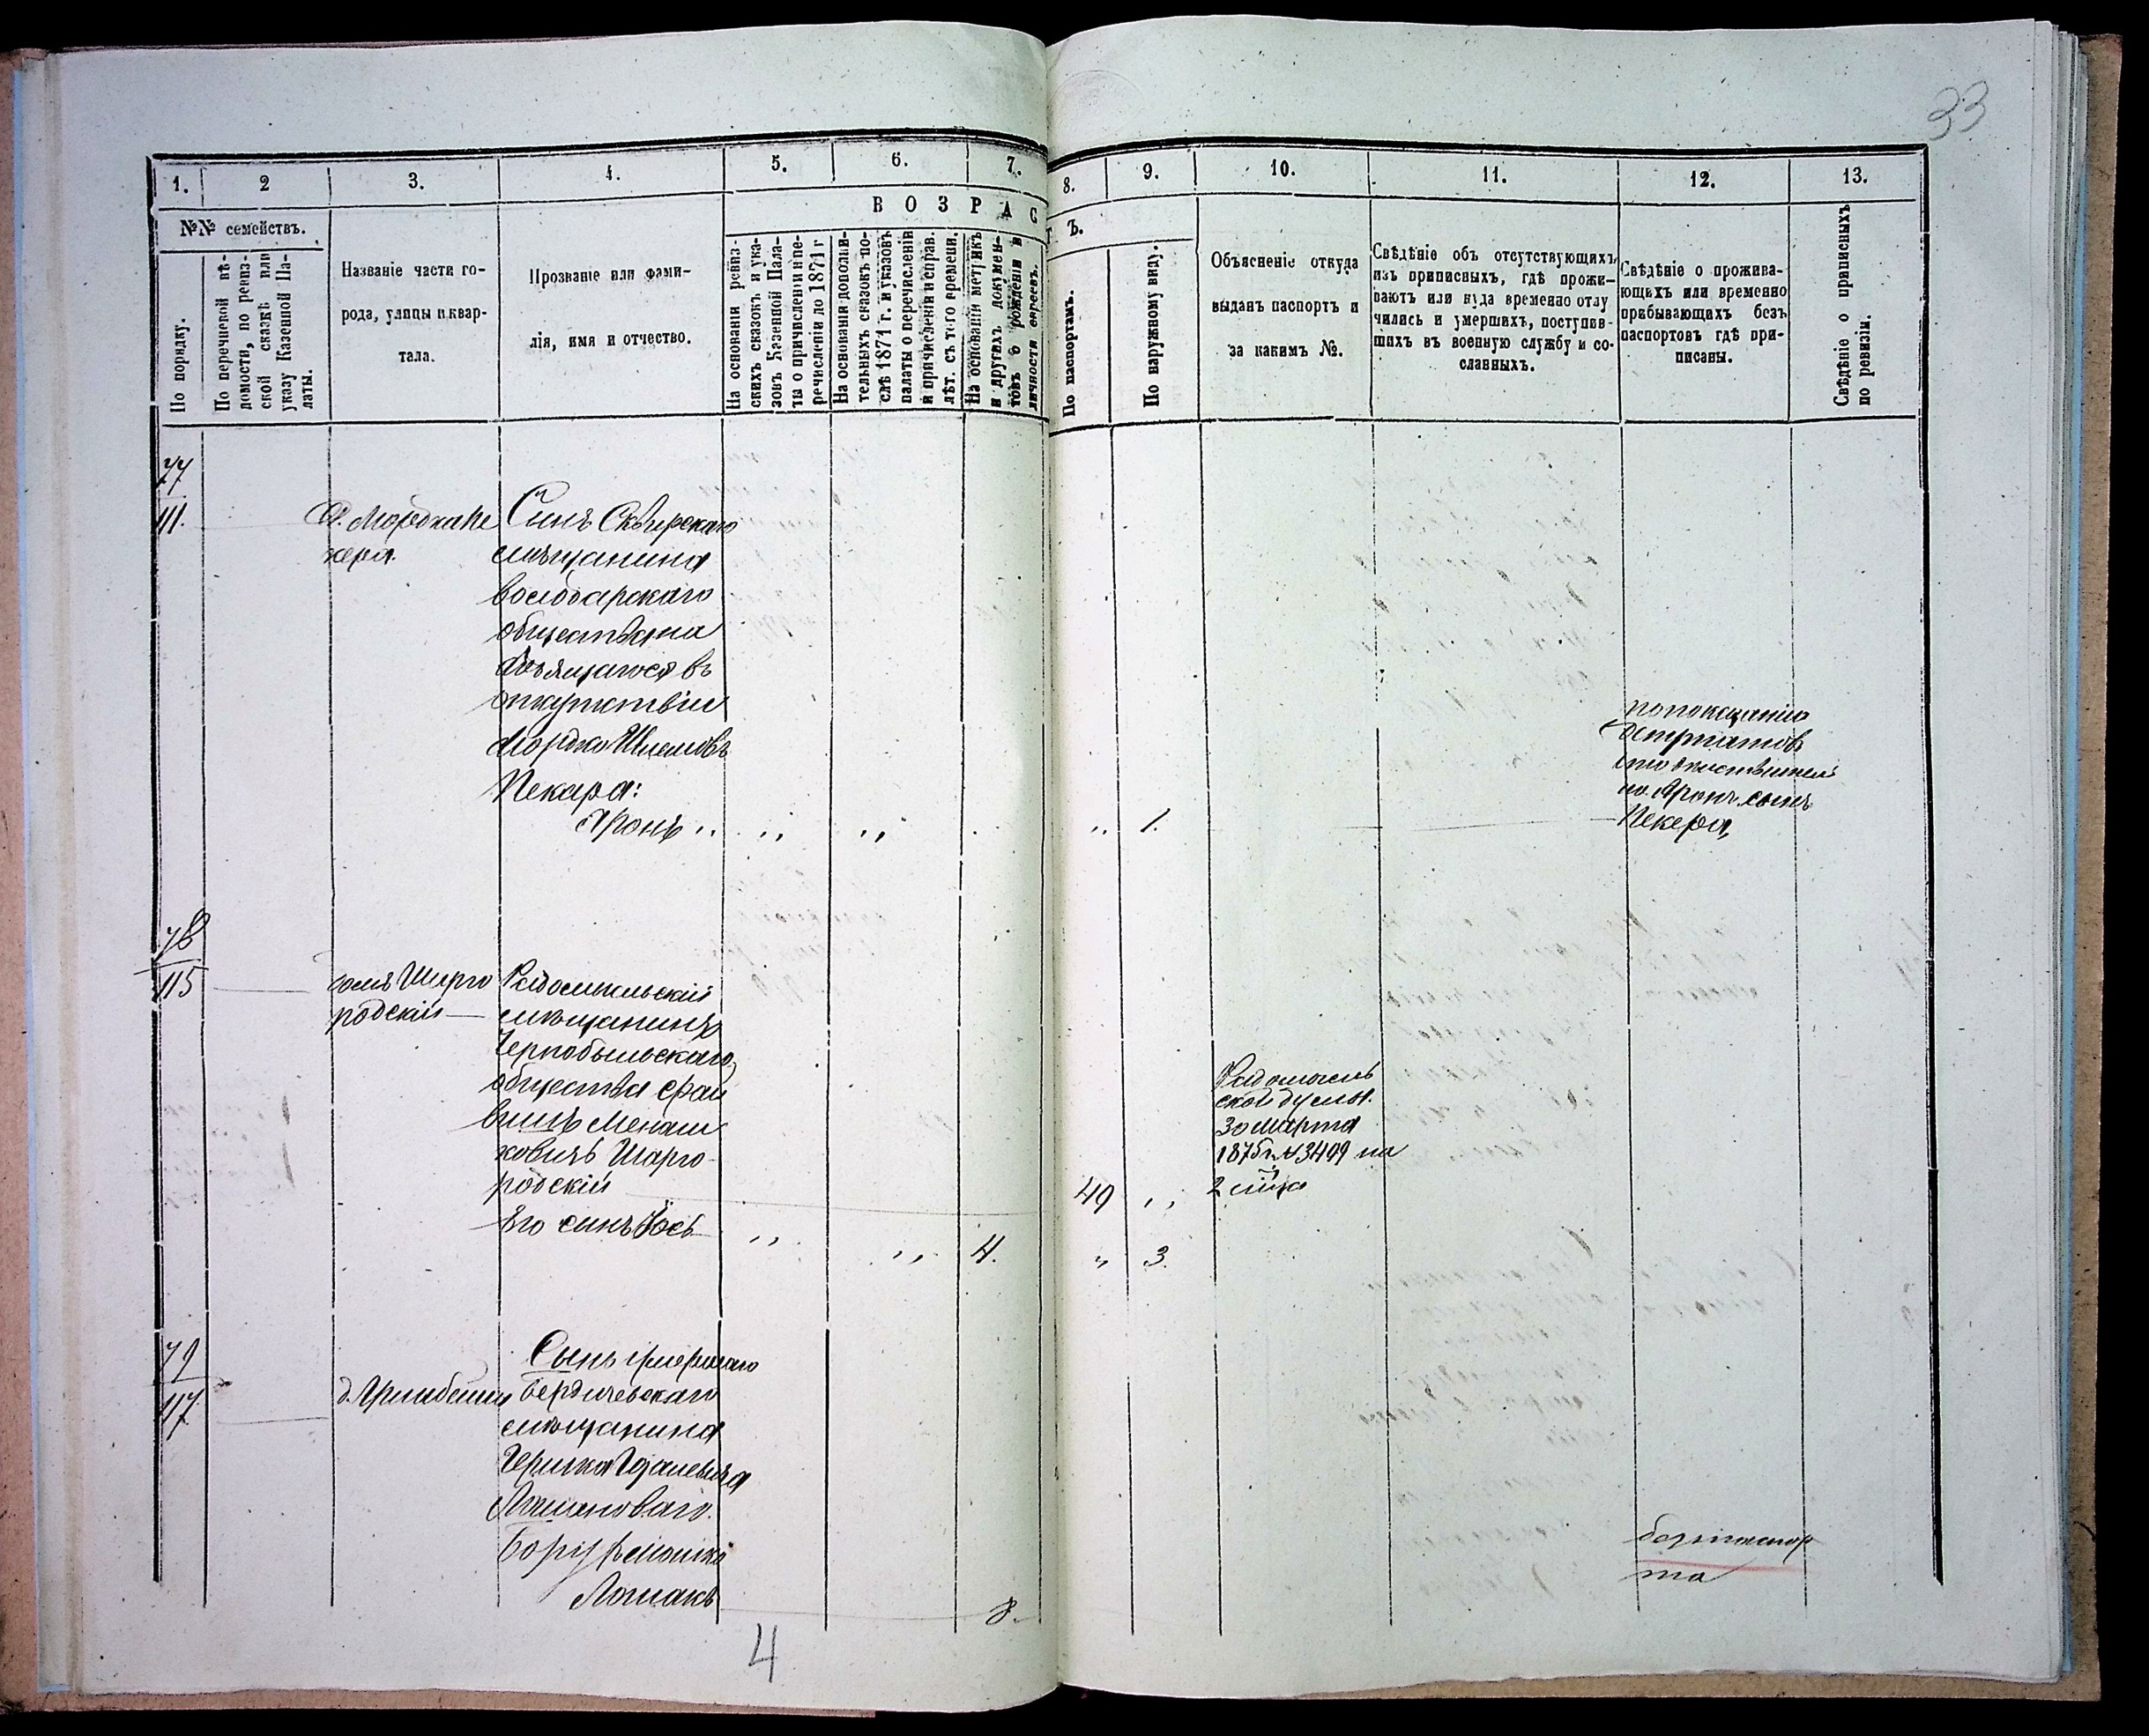 33
1. 2 3. 4. 5. 6. 7. 8. 9. 10. 11. 12. 13.
№№ семействъ.
По порядку.
По перечневой вѣ-
домости, по ревиз-
ской сказкѣ или
указу Казенной Па-
латы.
Названіе части го-
рода, улицы и квар-
тала.
Прозваніе или фами-
лія, имя и отчество.
В О З Р А С Т Ъ.
На основаніи ревиз-
скихъ сказокъ и ука-
зовъ Казенной Пала-
ты о причисленіи и пе-
речисленіи до 1871 г
На основаніи дополни-
тельныхъ сказокъ по-
слѣ 1871 г. и указовъ
палаты о перечисленіи
и причисленіи и справ.
лѣт. съ того времени.
На основаніи метрикъ
и другихъ докумен-
товъ о рожденіи и
личности евреевъ.
По паспортамъ.
По наружному виду.
Объясненіе откуда
выданъ паспортъ и
за какимъ №.
Свѣдѣніе объ отсутствующихъ
изъ приписныхъ, гдѣ прожи-
ваютъ или куда временно отлу
чились и умершихъ, поступив-
шихъ въ военную службу и со-
сланныхъ.
Свѣдѣніе о прожива-
ющихъ или временно
прибывающихъ безъ
паспортовъ гдѣ при-
писаны.
Свѣдѣніе о приписныхъ
по ревизіи.
77
111.
д. Мордка Пе
кера.
Сынъ Сквирскаго
мѣщанина
Володарскаго
общества на
ходящагося въ
отсутствіи
Мордко
Пекара:
Аронъ ,, ,, ,, ,, 1.
по показанію
что дѣйствитель
но Аронъ сынъ
Пекера,
78
115
домъ Шарго
родскій
Радомысльскій
мѣщанинъ
Чернобыльскаго
общества Фай
вишъ Менаш
ковичъ Шарго
родскій
49 ,,
Радомысль
ской думы.
30 Марта
1875 г. № 3499 на
2 м-ца
Его сынъ Іось ,, ,, 4. ,, 3.
79
117
Сынъ умершаго
Бердичевскаго
мѣщанина
Гершка
Борух
Лошакъ
8.
безъ паспор
та
4